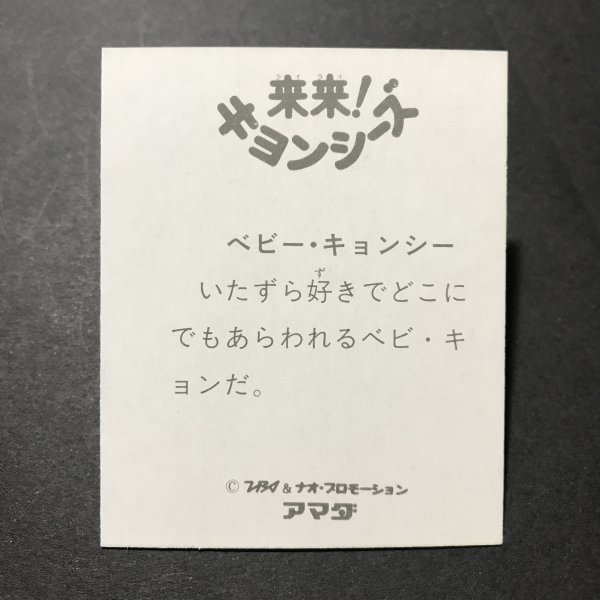 来来!
ライライ
キョンシーズ
ベビー・キョンシー
いたずら好きでどこに
ず
でもあらわれるベビ・キ
ョンだ。
© TBS & ナオ・プロモーション
アマダ